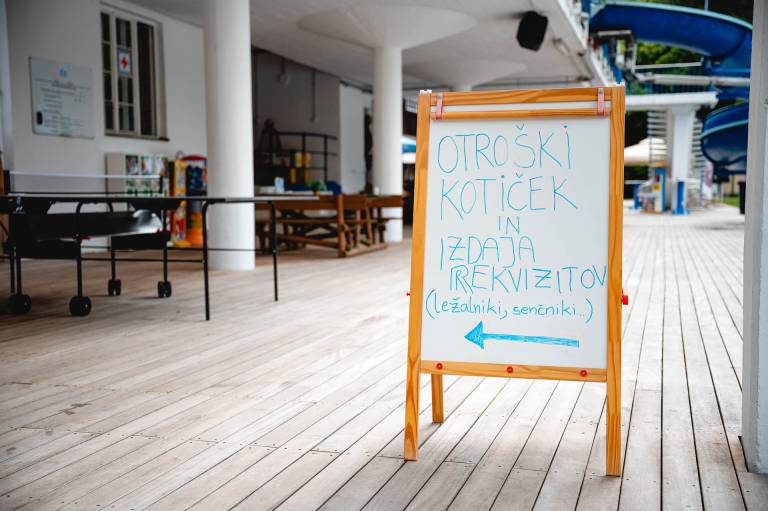 OTROŠKI
KOTIČEK
IN
IZDAJA
REKVIZITOV
(ležalniki, senčniki...)